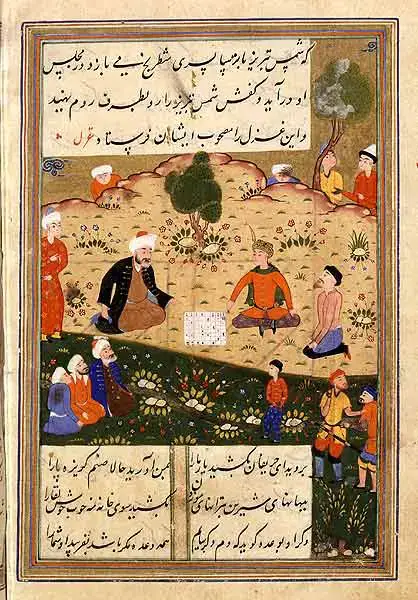 که شمس تبریز با ترسا پسری شطرنج می بازد در مجلس
او در آید و کفش شمس تبریز را رو بطرف روم نهید
و این غزل را مصحوب ایشان فرستاد غزل
بروید ای حریفان بکشید یار ما را بمن آورید حالا صنم گریزپا را
ببهانهای شیرین بترانهای موزون بکشید سوی خانه مه خوب خوش لقا را
وگر او بوعده گوید که دم دگر بیایم همه وعده مکر باشد بفریبد او شما را